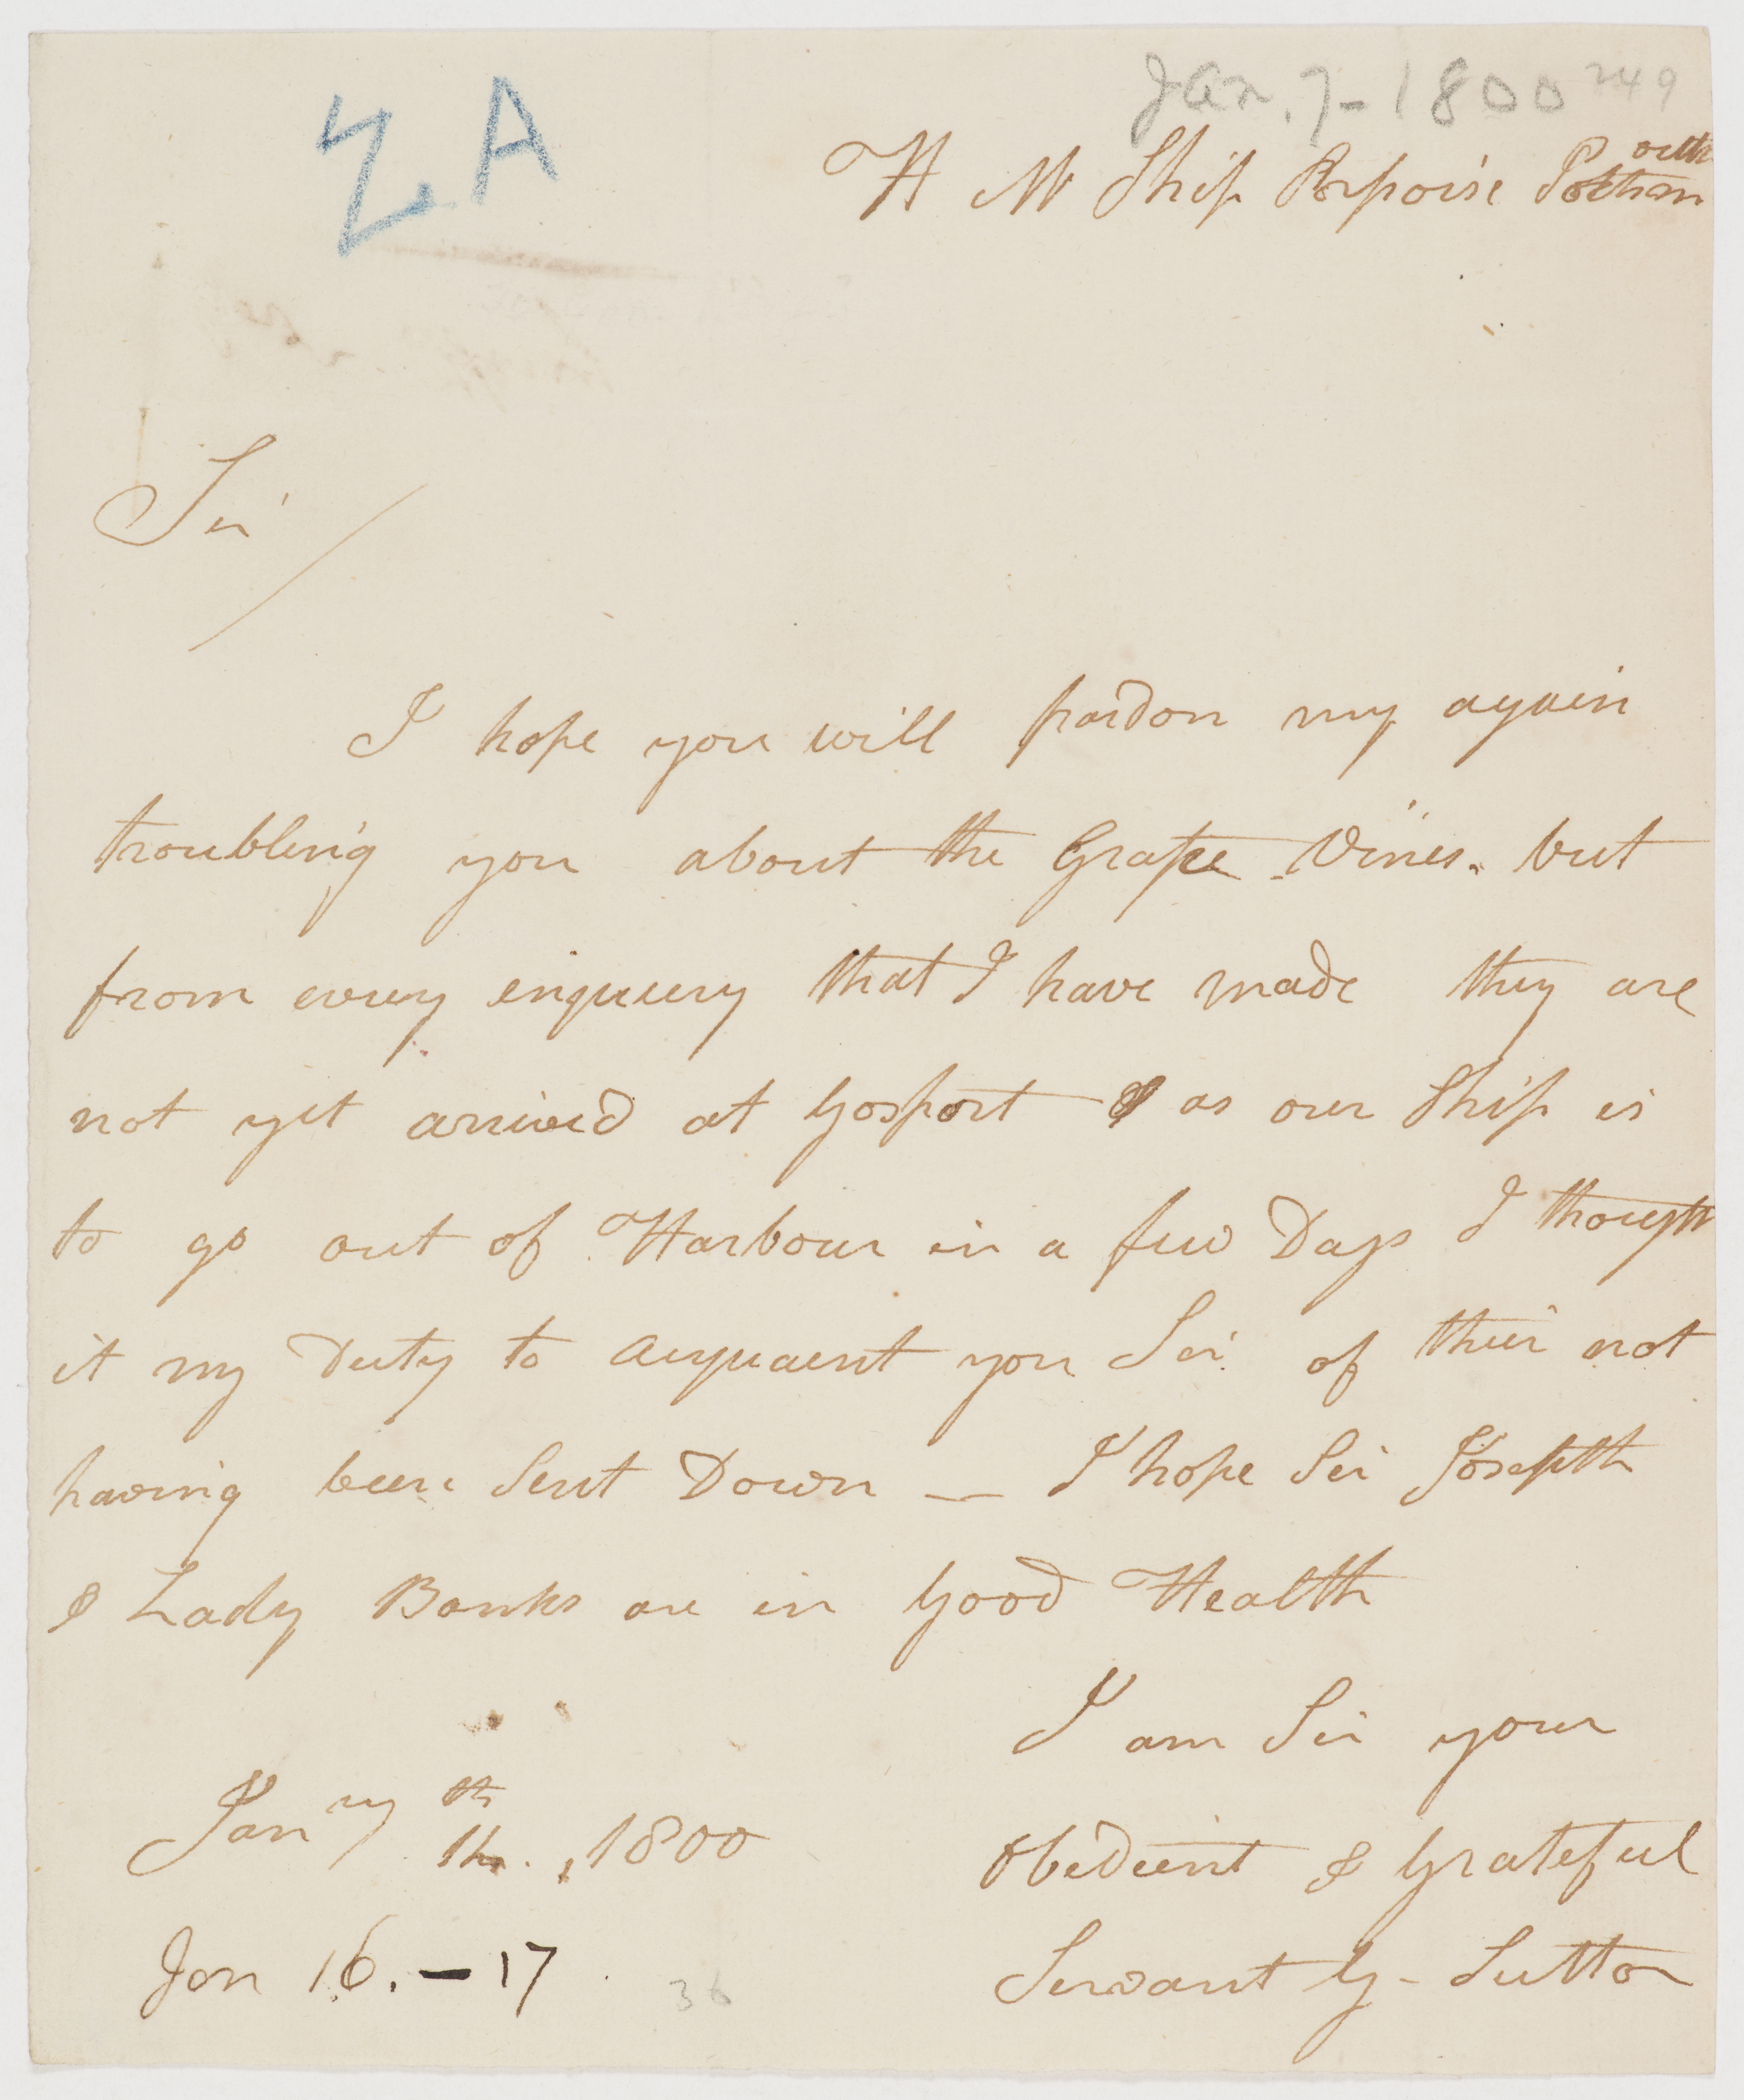 Jan. 7 - 1800 249
ZA
H M Ship Porpoise Portsmouth
Sir /
I hope you will pardon my again
troubling you about the Grape Vines. but
from every enquiery that I have made they are
not yet arrived at Gosport & as our Ship is
to go out of Harbour in a few Days I thought
it my Duty to acquaint you Sir of their not
having been Sent Down — I hope Sir Joseph
& Lady Banks are in Good Health
I am Sir your
Jany th 1800
Obedient & Grateful
Jan 16. - 17
Servant G - Sutton
36